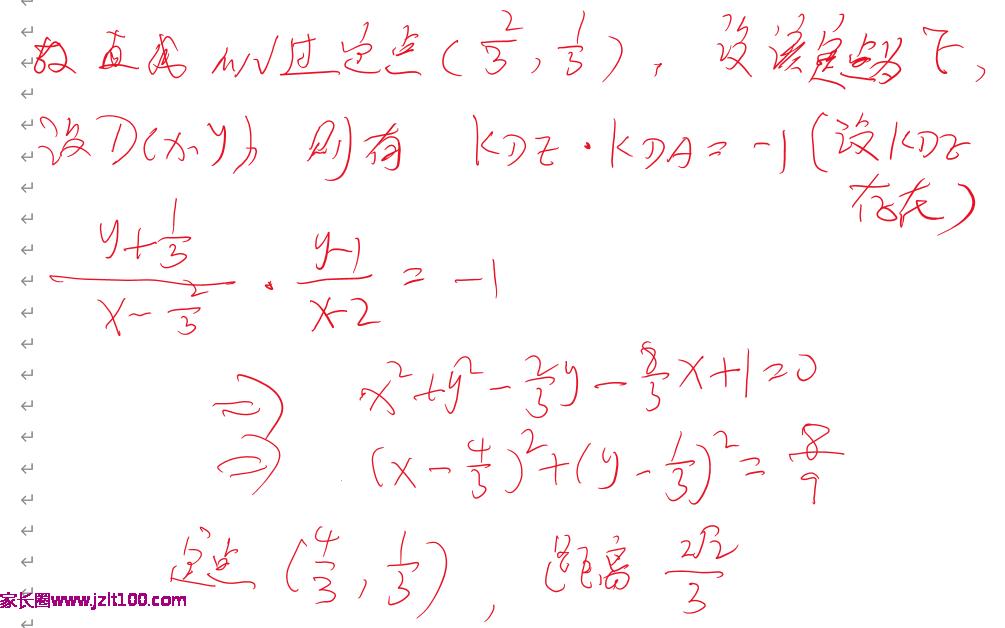 故直线MN过定点(2/3, 1/3), 设该定点为E,
设D(x,y), 则有 kDE·kDA=-1(设kDE
存在)
(y+1/3)/(x-2/3)·(y-1)/(x-2)=-1
⇒ x²+y²-2/3y-8/3x+1=0
⇒ (x-4/3)²+(y-1/3)²=8/9
定点(4/3, 1/3), 距离 2√2/3
家长圈www.jzlt100.com